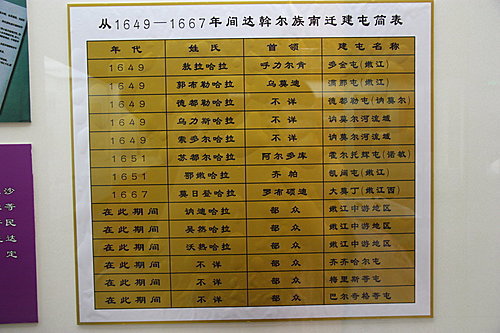 从1649—1667年间达斡尔族南迁建屯简表
年代 姓氏 首领 建屯名称
1649 敖拉哈拉 呼力尔肯 多金屯(嫩江)
1649 郭布勒哈拉 乌莫迪 满那屯(嫩江)
1649 德都勒哈拉 不详 德都勒屯(讷莫尔)
1649 乌力斯哈拉 不详 讷莫尔河流域
1649 索多尔哈拉 不详 讷莫尔河流域
1651 苏都尔哈拉 阿尔多库 霍尔托辉屯(诺敏)
1651 鄂嫩哈拉 齐帕 凯阔屯(嫩江)
1667 莫日登哈拉 罗布硕迪 大莫丁(嫩江西)
在此期间 讷迪哈拉 部众 嫩江中游地区
在此期间 吴然哈拉 部众 嫩江中游地区
在此期间 沃热哈拉 部众 嫩江中游地区
在此期间 不详 部众 齐齐哈尔屯
在此期间 不详 部众 梅里斯等屯
在此期间 不详 部众 巴尔奇格等屯
沙
等
民
达
定